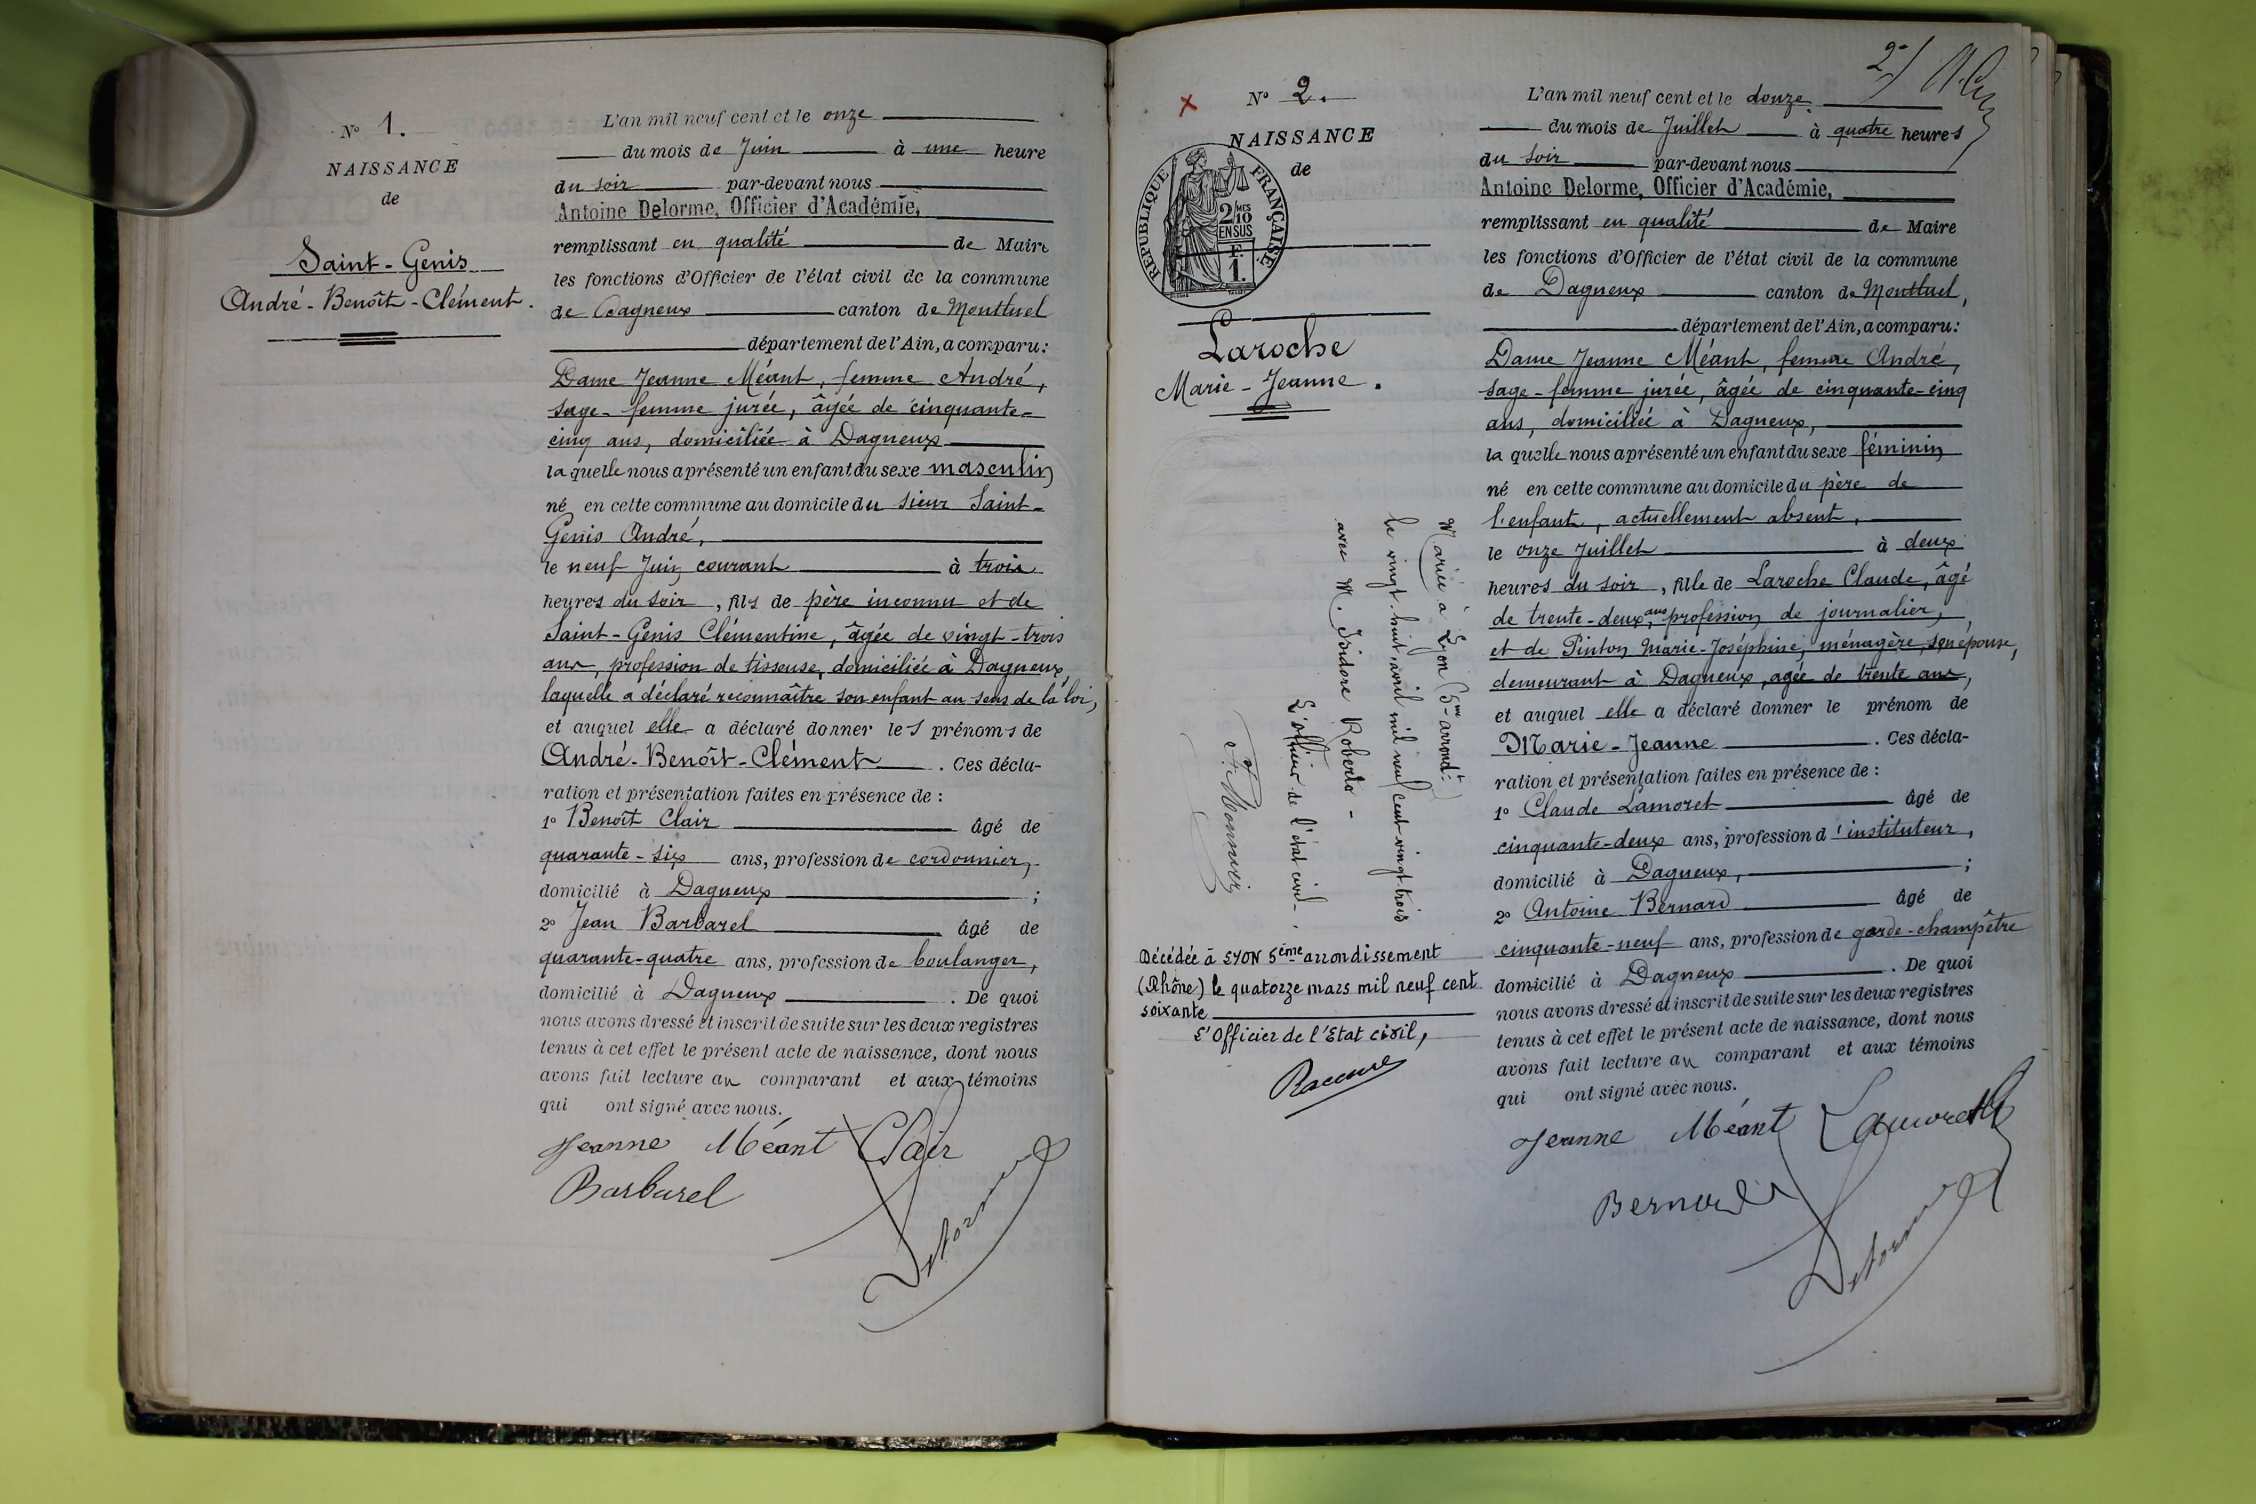 N° 1.
NAISSANCE
de
Saint-Genis
André-Benoît-Clément.
L'an mil neuf cent et le onze
du mois de Juin à une heure
du soir par-devant nous
Antoine Delorme, Officier d'Académie,
remplissant en qualité de Maire
les fonctions d'Officier de l'état civil de la commune
de Dagneux canton de Montluel
département de l'Ain, a comparu:
Dame Jeanne Méant, femme André,
sage-femme jurée, âgée de cinquante-
cinq ans, domiciliée à Dagneux
laquelle nous a présenté un enfant du sexe masculin
né en cette commune au domicile du sieur Saint-
Genis André,
le neuf Juin courant à trois
heures du soir, fils de père inconnu et de
Saint-Genis Clémentine, âgée de vingt-trois
ans, profession de tisseuse, domiciliée à Dagneux,
laquelle a déclaré reconnaître son enfant au sens de la loi,
et auquel elle a déclaré donner les prénoms de
André-Benoît-Clément. Ces décla-
ration et présentation faites en présence de :
1° Benoît Clair âgé de
quarante-six ans, profession de cordonnier,
domicilié à Dagneux ;
2° Jean Barbarel âgé de
quarante-quatre ans, profession de boulanger,
domicilié à Dagneux. De quoi
nous avons dressé et inscrit de suite sur les deux registres
tenus à cet effet le présent acte de naissance, dont nous
avons fait lecture au comparant et aux témoins
qui ont signé avec nous.
Jeanne Méant Clair
Barbarel
Delorme
2e/
N° 2.
NAISSANCE
de
RÉPUBLIQUE FRANÇAISE
2/MES
10
EN SUS
F.
1.
Laroche
Marie-Jeanne.
Mariée à Lyon (5me arrondt.)
le vingt-huit avril mil neuf cent vingt-trois
avec M. Isidore Roberto -
L'officier de l'état civil-
Décédée à LYON 5ème arrondissement
(Rhône) le quatorze mars mil neuf cent
soixante
L'Officier de l'Etat civil,
L'an mil neuf cent et le douze
du mois de Juillet à quatre heures
du soir par-devant nous
Antoine Delorme, Officier d'Académie,
remplissant en qualité de Maire
les fonctions d'Officier de l'état civil de la commune
de Dagneux canton de Montluel,
département de l'Ain, a comparu:
Dame Jeanne Méant, femme André,
sage-femme jurée, âgée de cinquante-cinq
ans, domiciliée à Dagneux,
laquelle nous a présenté un enfant du sexe féminin
né en cette commune au domicile du père de
l'enfant, actuellement absent,
le onze Juillet à deux
heures du soir, fille de Laroche Claude, âgé
de trente-deux ans, profession de journalier,
et de Pinton Marie-Joséphine, ménagère, son épouse,
demeurant à Dagneux, agée de trente ans,
et auquel elle a déclaré donner le prénom de
Marie-Jeanne. Ces décla-
ration et présentation faites en présence de :
1° Claude Lamoret âgé de
cinquante-deux ans, profession d'instituteur,
domicilié à Dagneux, ;
2° Antoine Bernard âgé de
cinquante-neuf ans, profession de garde-champêtre
domicilié à Dagneux. De quoi
nous avons dressé et inscrit de suite sur les deux registres
tenus à cet effet le présent acte de naissance, dont nous
avons fait lecture au comparant et aux témoins
qui ont signé avec nous.
Jeanne Méant Lamoret
Bernard
Delorme